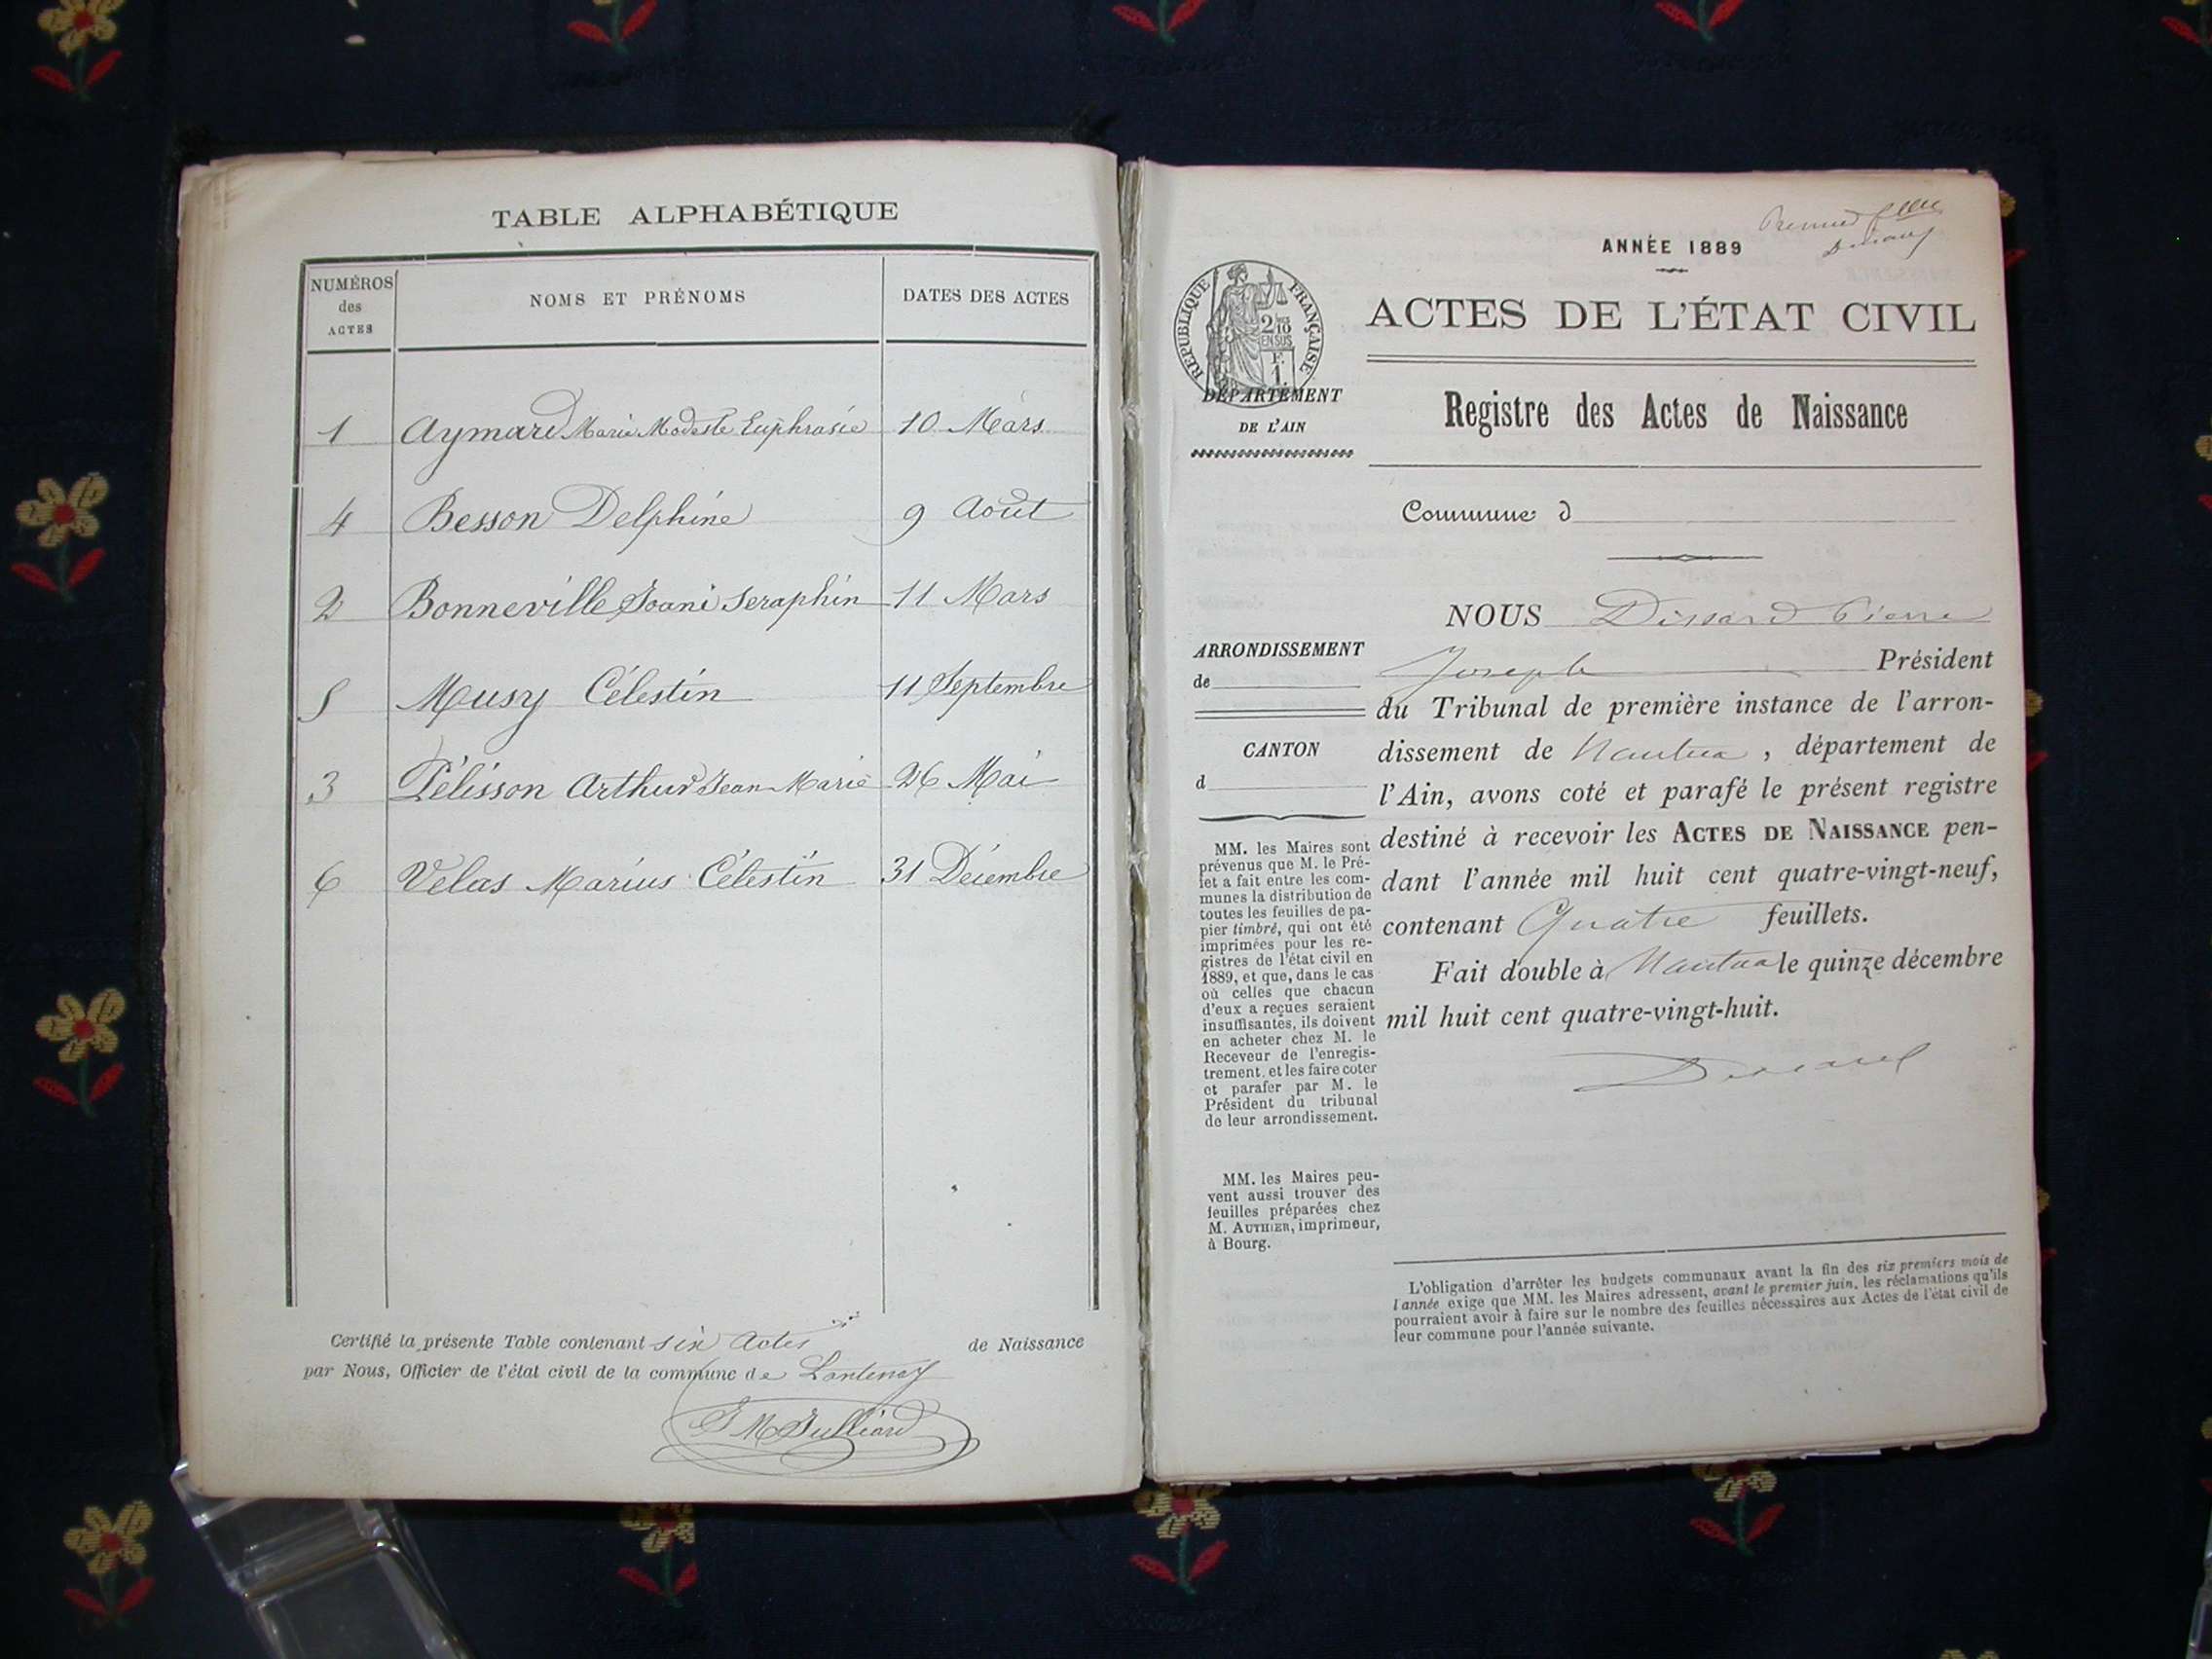 TABLE ALPHABÉTIQUE
NUMÉROS
des
ACTES
NOMS ET PRÉNOMS
DATES DES ACTES
1 Aymard Marie Modeste Euphrasie 10 Mars
4 Besson Delphine 9 Août
2 Bonneville Joani Seraphin 11 Mars
5 Musy Célestin 11 Septembre
3 Pélisson Arthur Jean Marie 26 Mai
6 Velas Marius Célestin 31 Décembre
Certifié la présente Table contenant six Actes de Naissance
par Nous, Officier de l'état civil de la commune de Lantenay
J M Julliard
Premier
ANNÉE 1889
ACTES DE L'ÉTAT CIVIL
RÉPUBLIQUE FRANÇAISE
2/10
EN SUS
F.
1.
DÉPARTEMENT
DE L'AIN
Registre des Actes de Naissance
Commune d
NOUS Dissard Pierre
Joseph Président
du Tribunal de première instance de l'arron-
dissement de Nantua, département de
l'Ain, avons coté et parafé le présent registre
destiné à recevoir les ACTES DE NAISSANCE pen-
dant l'année mil huit cent quatre-vingt-neuf,
contenant Quatre feuillets.
Fait double à Nantua le quinze décembre
mil huit cent quatre-vingt-huit.
Dissard
ARRONDISSEMENT
de
CANTON
d
MM. les Maires sont
prévenus que M. le Pré-
fet a fait entre les com-
munes la distribution de
toutes les feuilles de pa-
pier timbré, qui ont été
imprimées pour les re-
gistres de l'état civil en
1889, et que, dans le cas
où celles que chacun
d'eux a reçues seraient
insuffisantes, ils doivent
en acheter chez M. le
Receveur de l'enregis-
trement, et les faire coter
et parafer par M. le
Président du tribunal
de leur arrondissement.
MM. les Maires peu-
vent aussi trouver des
feuilles préparées chez
M. AUTHIER, imprimeur,
à Bourg.
L'obligation d'arrêter les budgets communaux avant la fin des six premiers mois de
l'année exige que MM. les Maires adressent, avant le premier juin, les réclamations qu'ils
pourraient avoir à faire sur le nombre des feuilles nécessaires aux Actes de l'état civil de
leur commune pour l'année suivante.